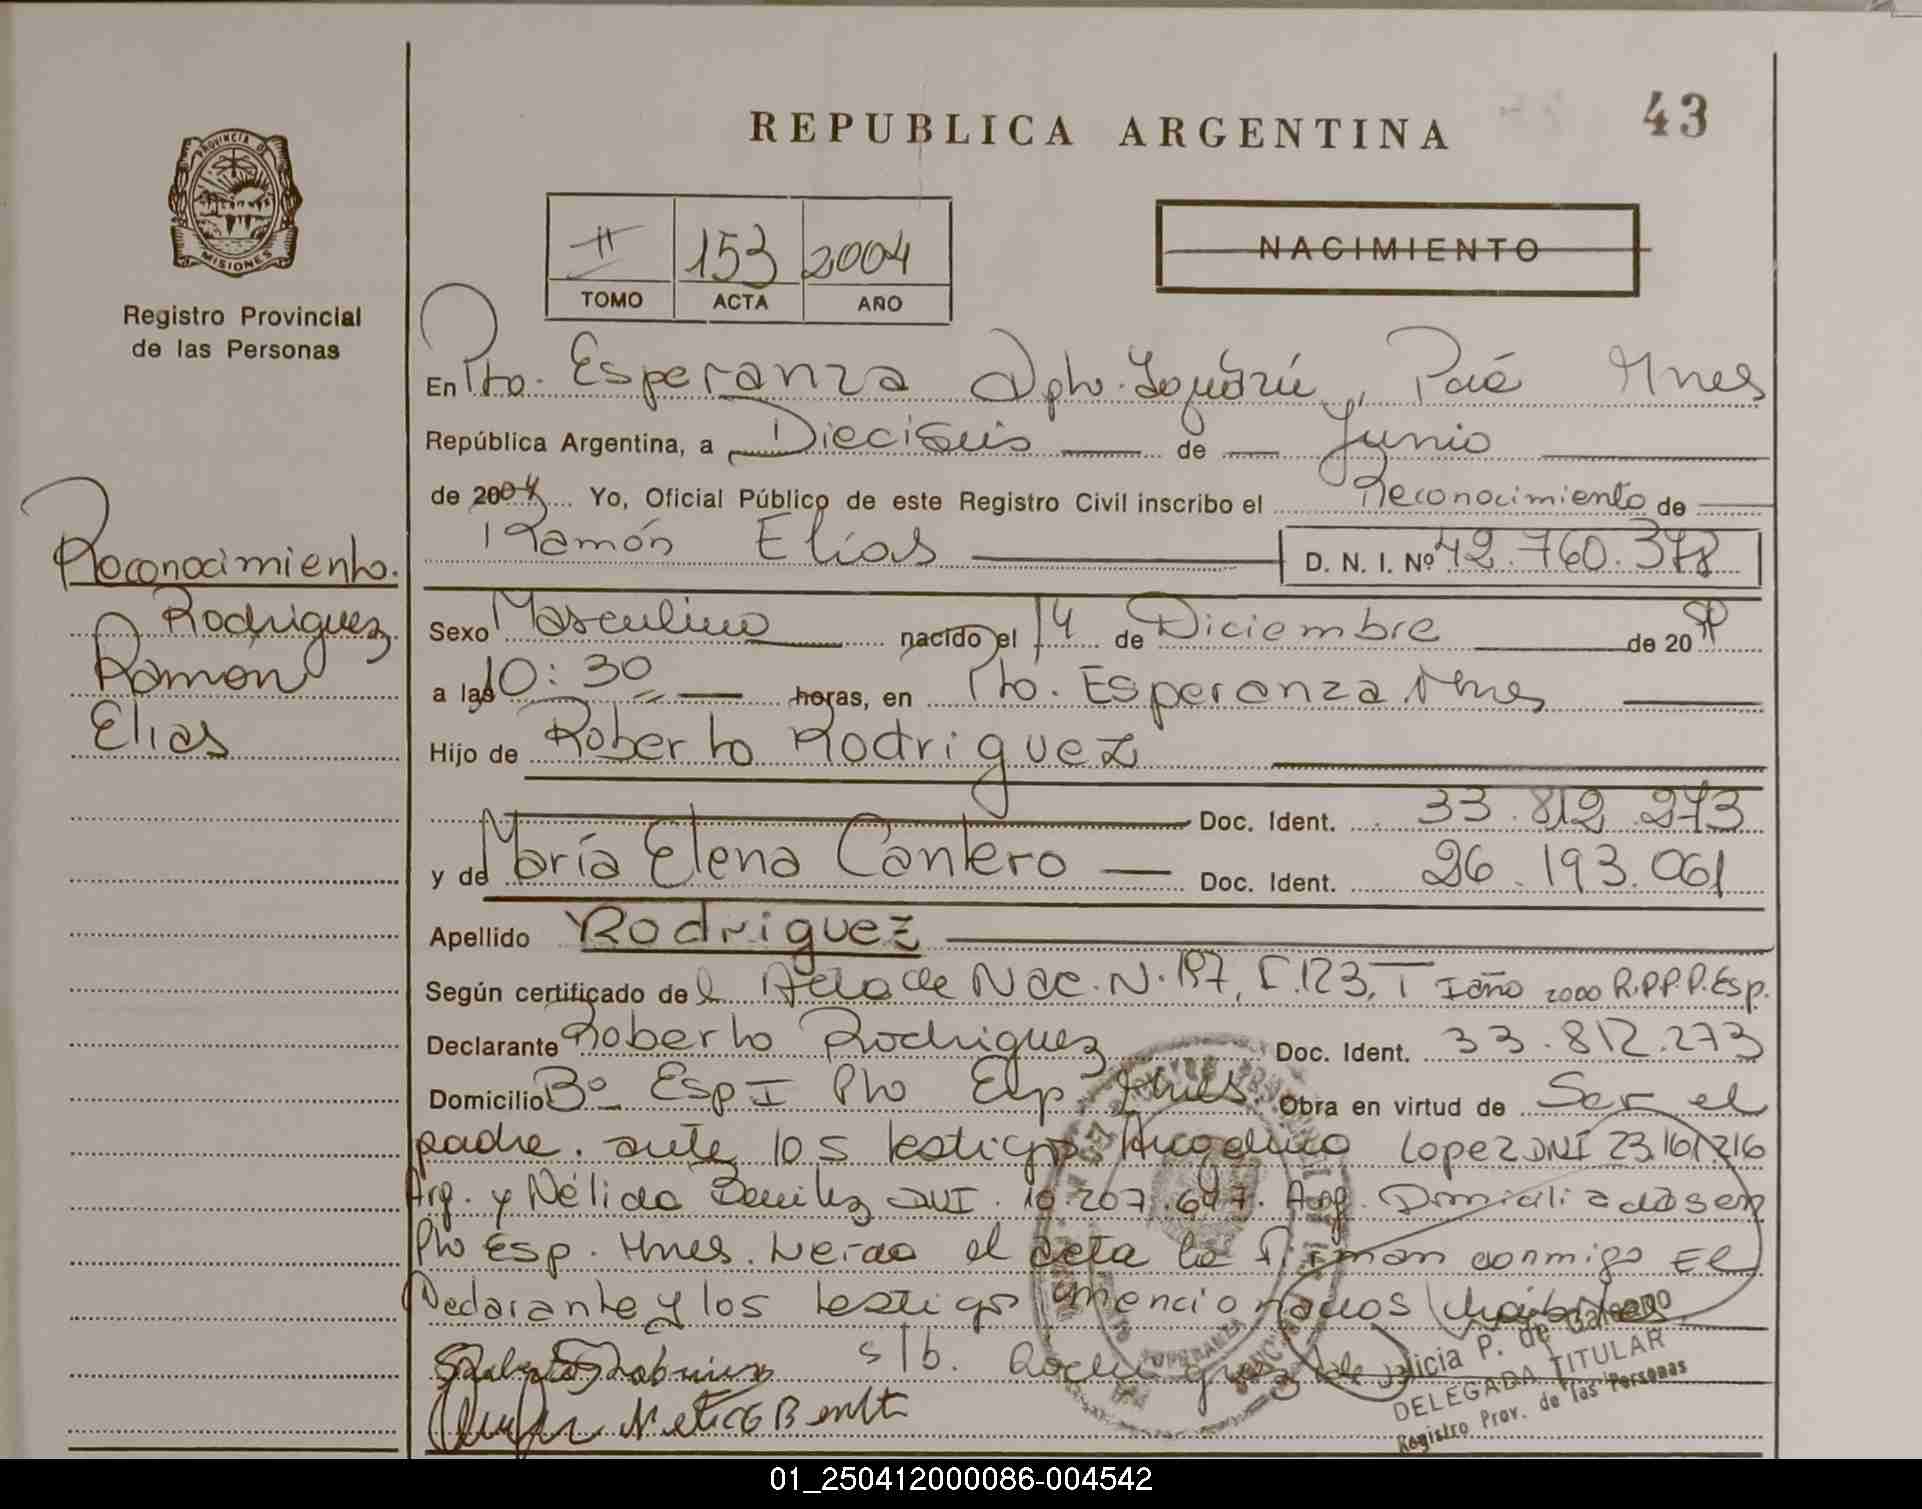 43
REPUBLICA ARGENTINA
PROVINCIA D
MISIONES
Registro Provincial
de las Personas
II 153 2004
TOMO ACTA AÑO
NACIMIENTO
En Pto. Esperanza Dpto. Iguazú, Pcia Mnes
República Argentina, a Dieciseis de Junio
de 2004 Yo, Oficial Público de este Registro Civil inscribo el Reconocimiento de
Ramón Elías D. N. I. Nº 42.760.378
Reconocimiento.
Rodriguez
Ramon
Elias
Sexo Masculino nacido el 14 de Diciembre de 20
a las 10:30 horas, en Pto. Esperanza Mnes
Hijo de Roberto Rodriguez
Doc. Ident. 33.812.273
y de María Elena Cantero Doc. Ident. 26.193.061
Apellido Rodriguez
Según certificado del Acta de Nac. N. 197, F.123, T I año 2000 R.P.P.P.Esp.
Declarante Roberto Rodriguez Doc. Ident. 33.812.273
Domicilio Bº Esp I Pto Esp Mnes. Obra en virtud de Ser el
padre. ante los testigos Lopez DNI 23.161.216
Arg. y Nélida Benitez DNI. 10.207.647. Arg. Domiciliados en
Pto Esp. Mnes. Leida el acta la firman conmigo El
Declarante y los testigos mencionados
s/b. Rodriguez Vale
Alicia P. de Galeano
DELEGADA TITULAR
Registro Prov. de las Personas
01_250412000086-004542